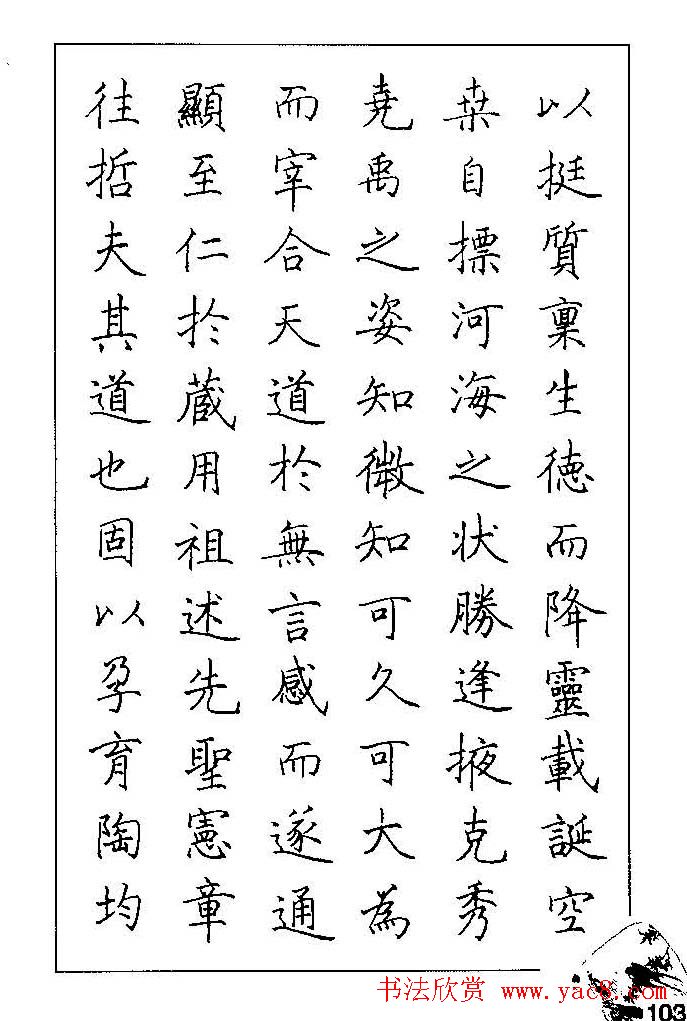 以挺質稟生德而降靈載誕空
桒自摽河海之状勝逢掖克秀
堯禹之姿知微知可久可大為
而宰合天道於無言感而遂通
顯至仁於蔵用祖述先聖憲章
往哲夫其道也固以孕育陶均
书法欣赏 www.yac8.com
103